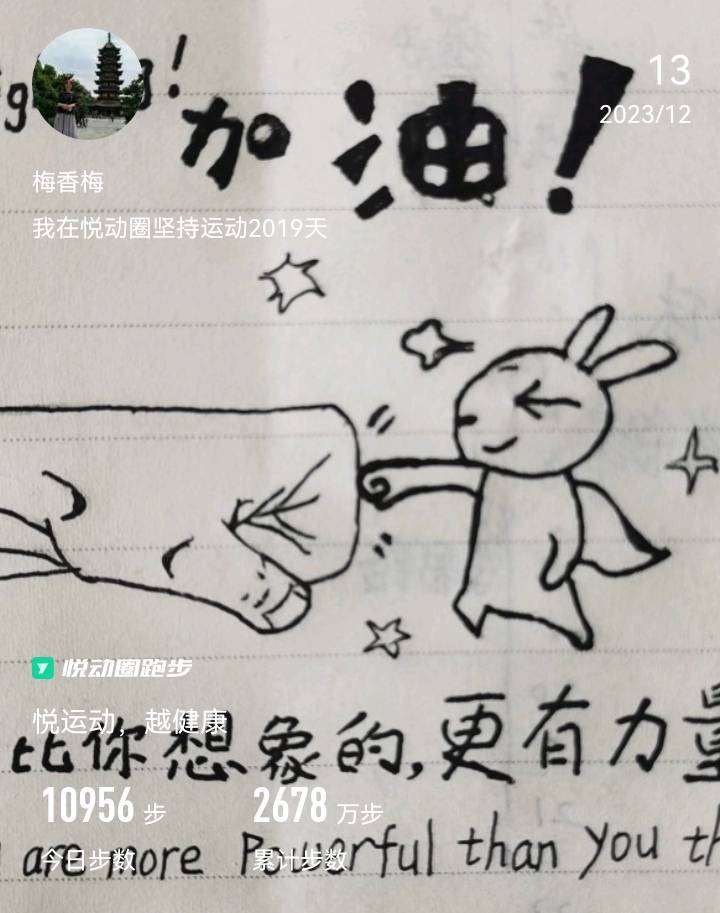 加油!
13
2023/12
梅香梅
我在悦动圈坚持运动2019天
悦动圈跑步
悦运动,越健康
比你想象的,更有力量
10956 步
2678 万步
今日步数
累计步数
are more Powerful than you th